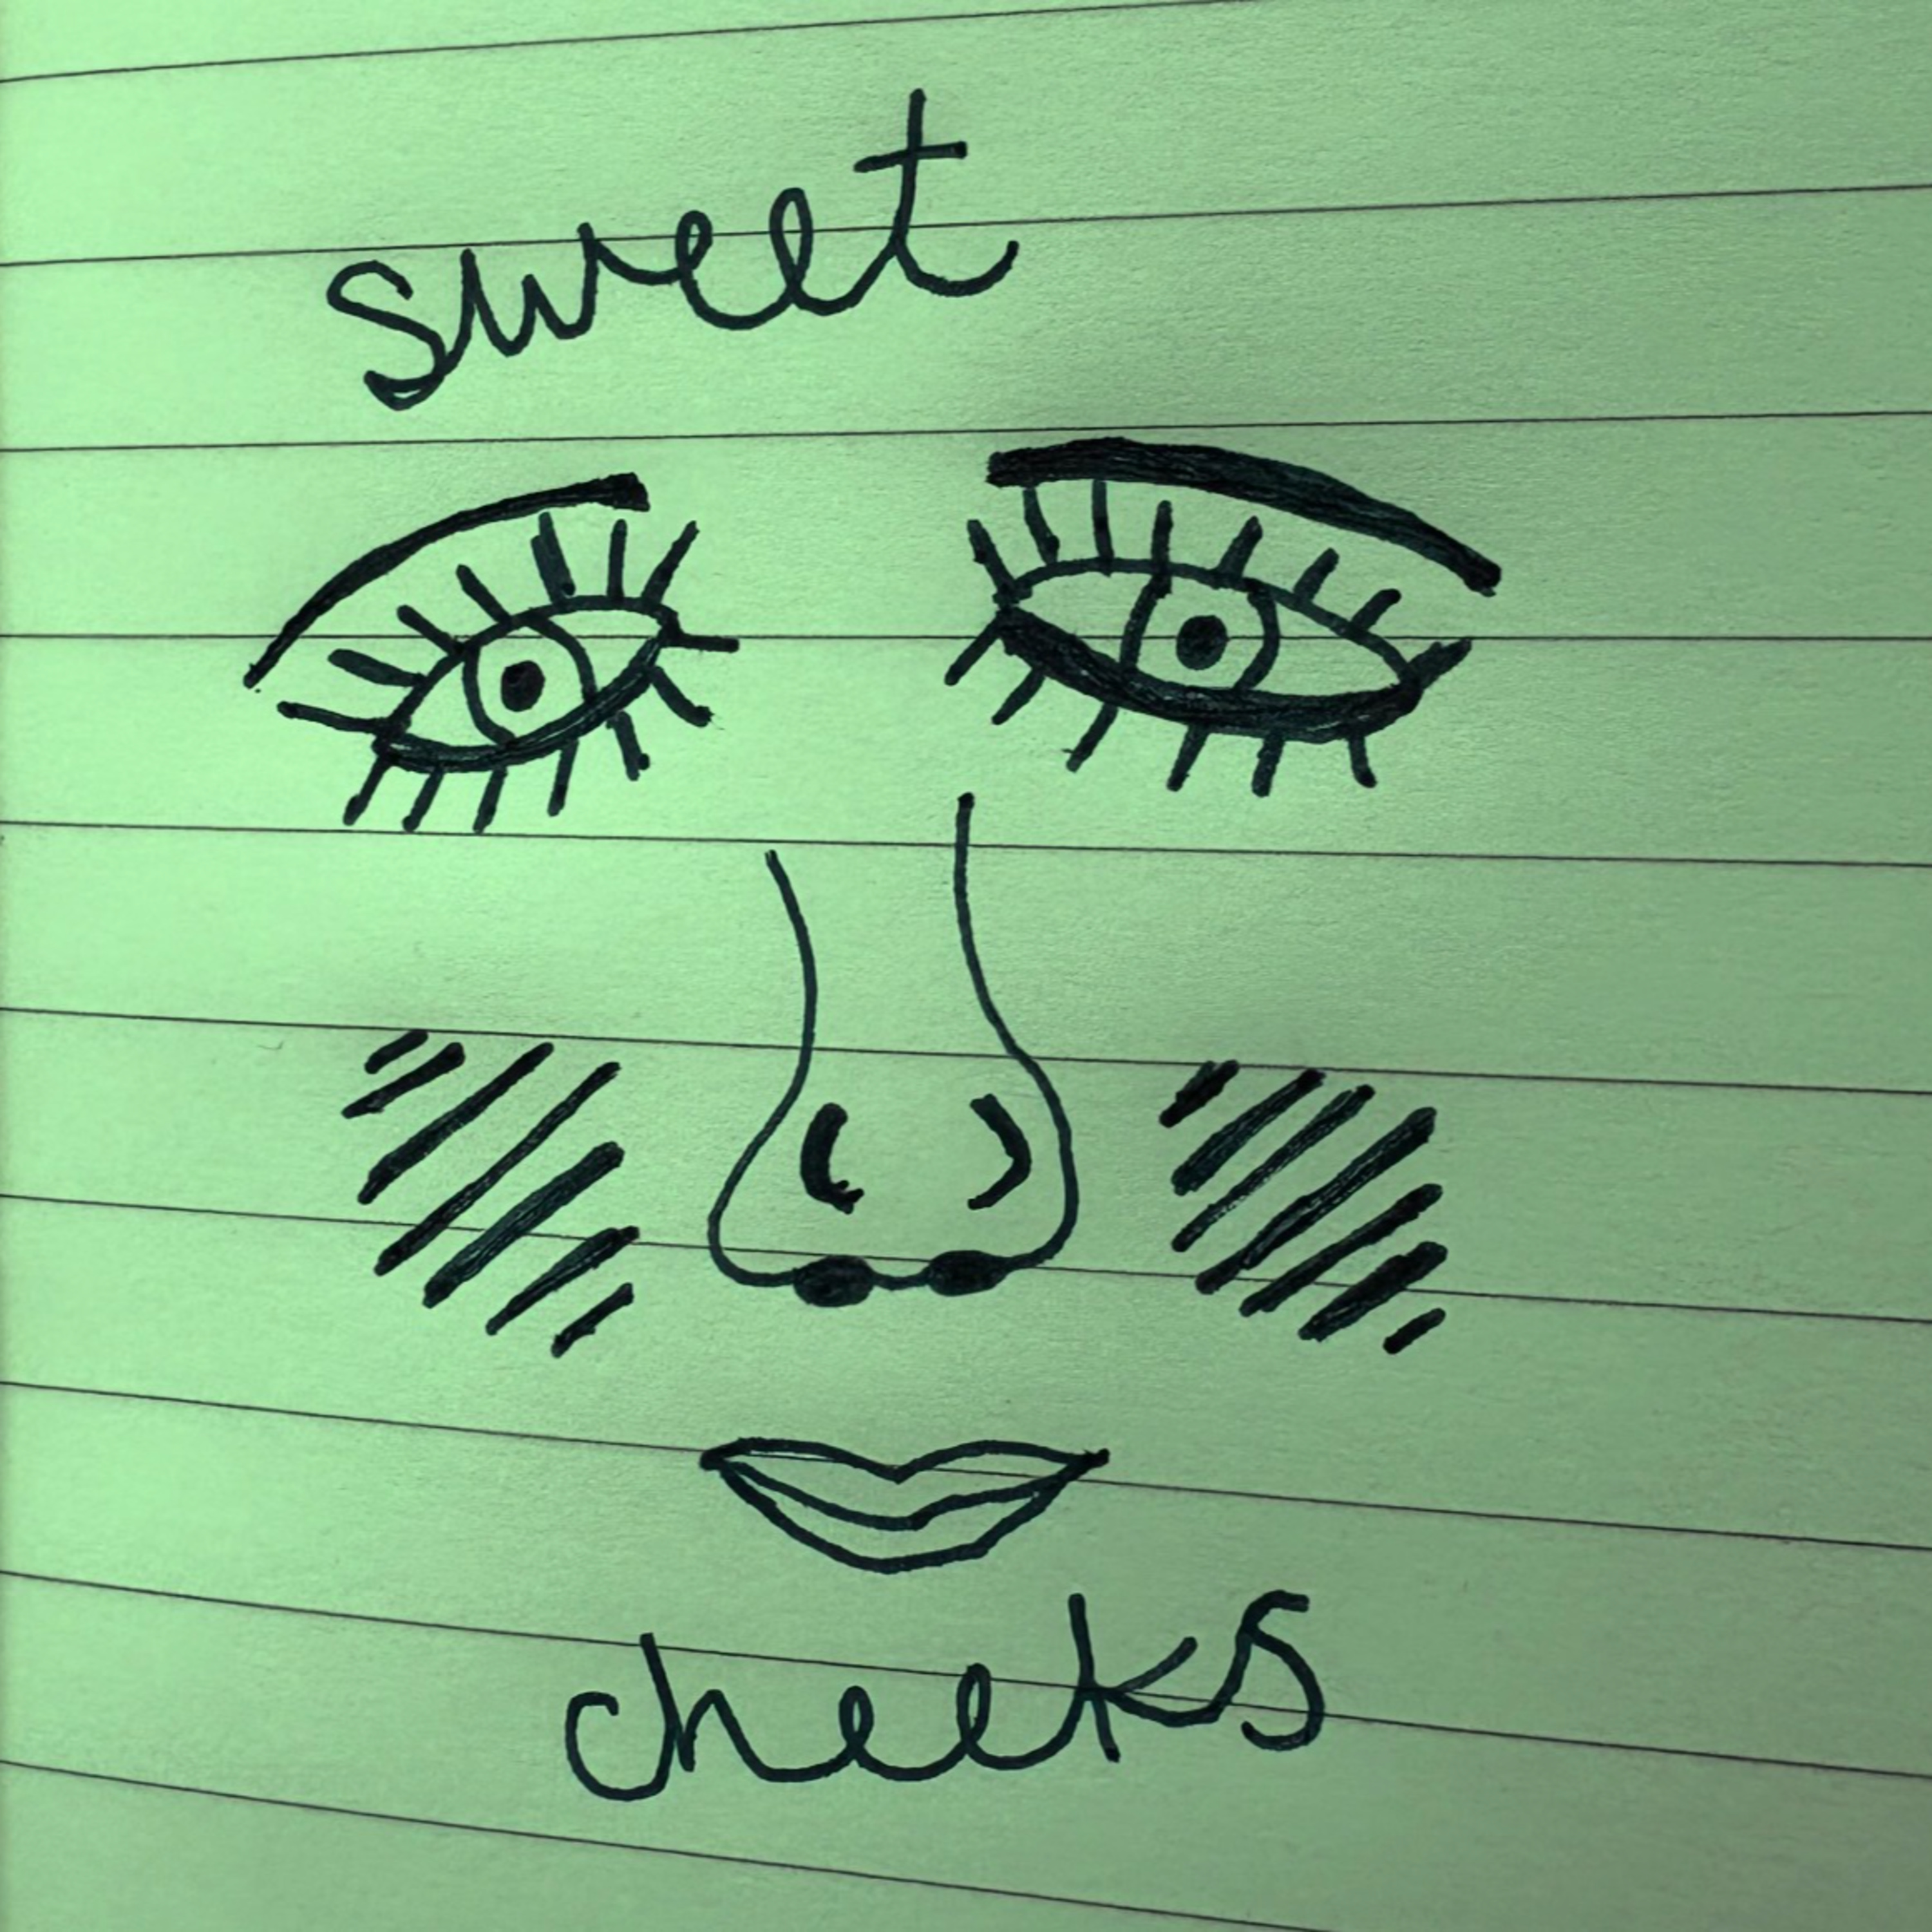 sweet
cheeks